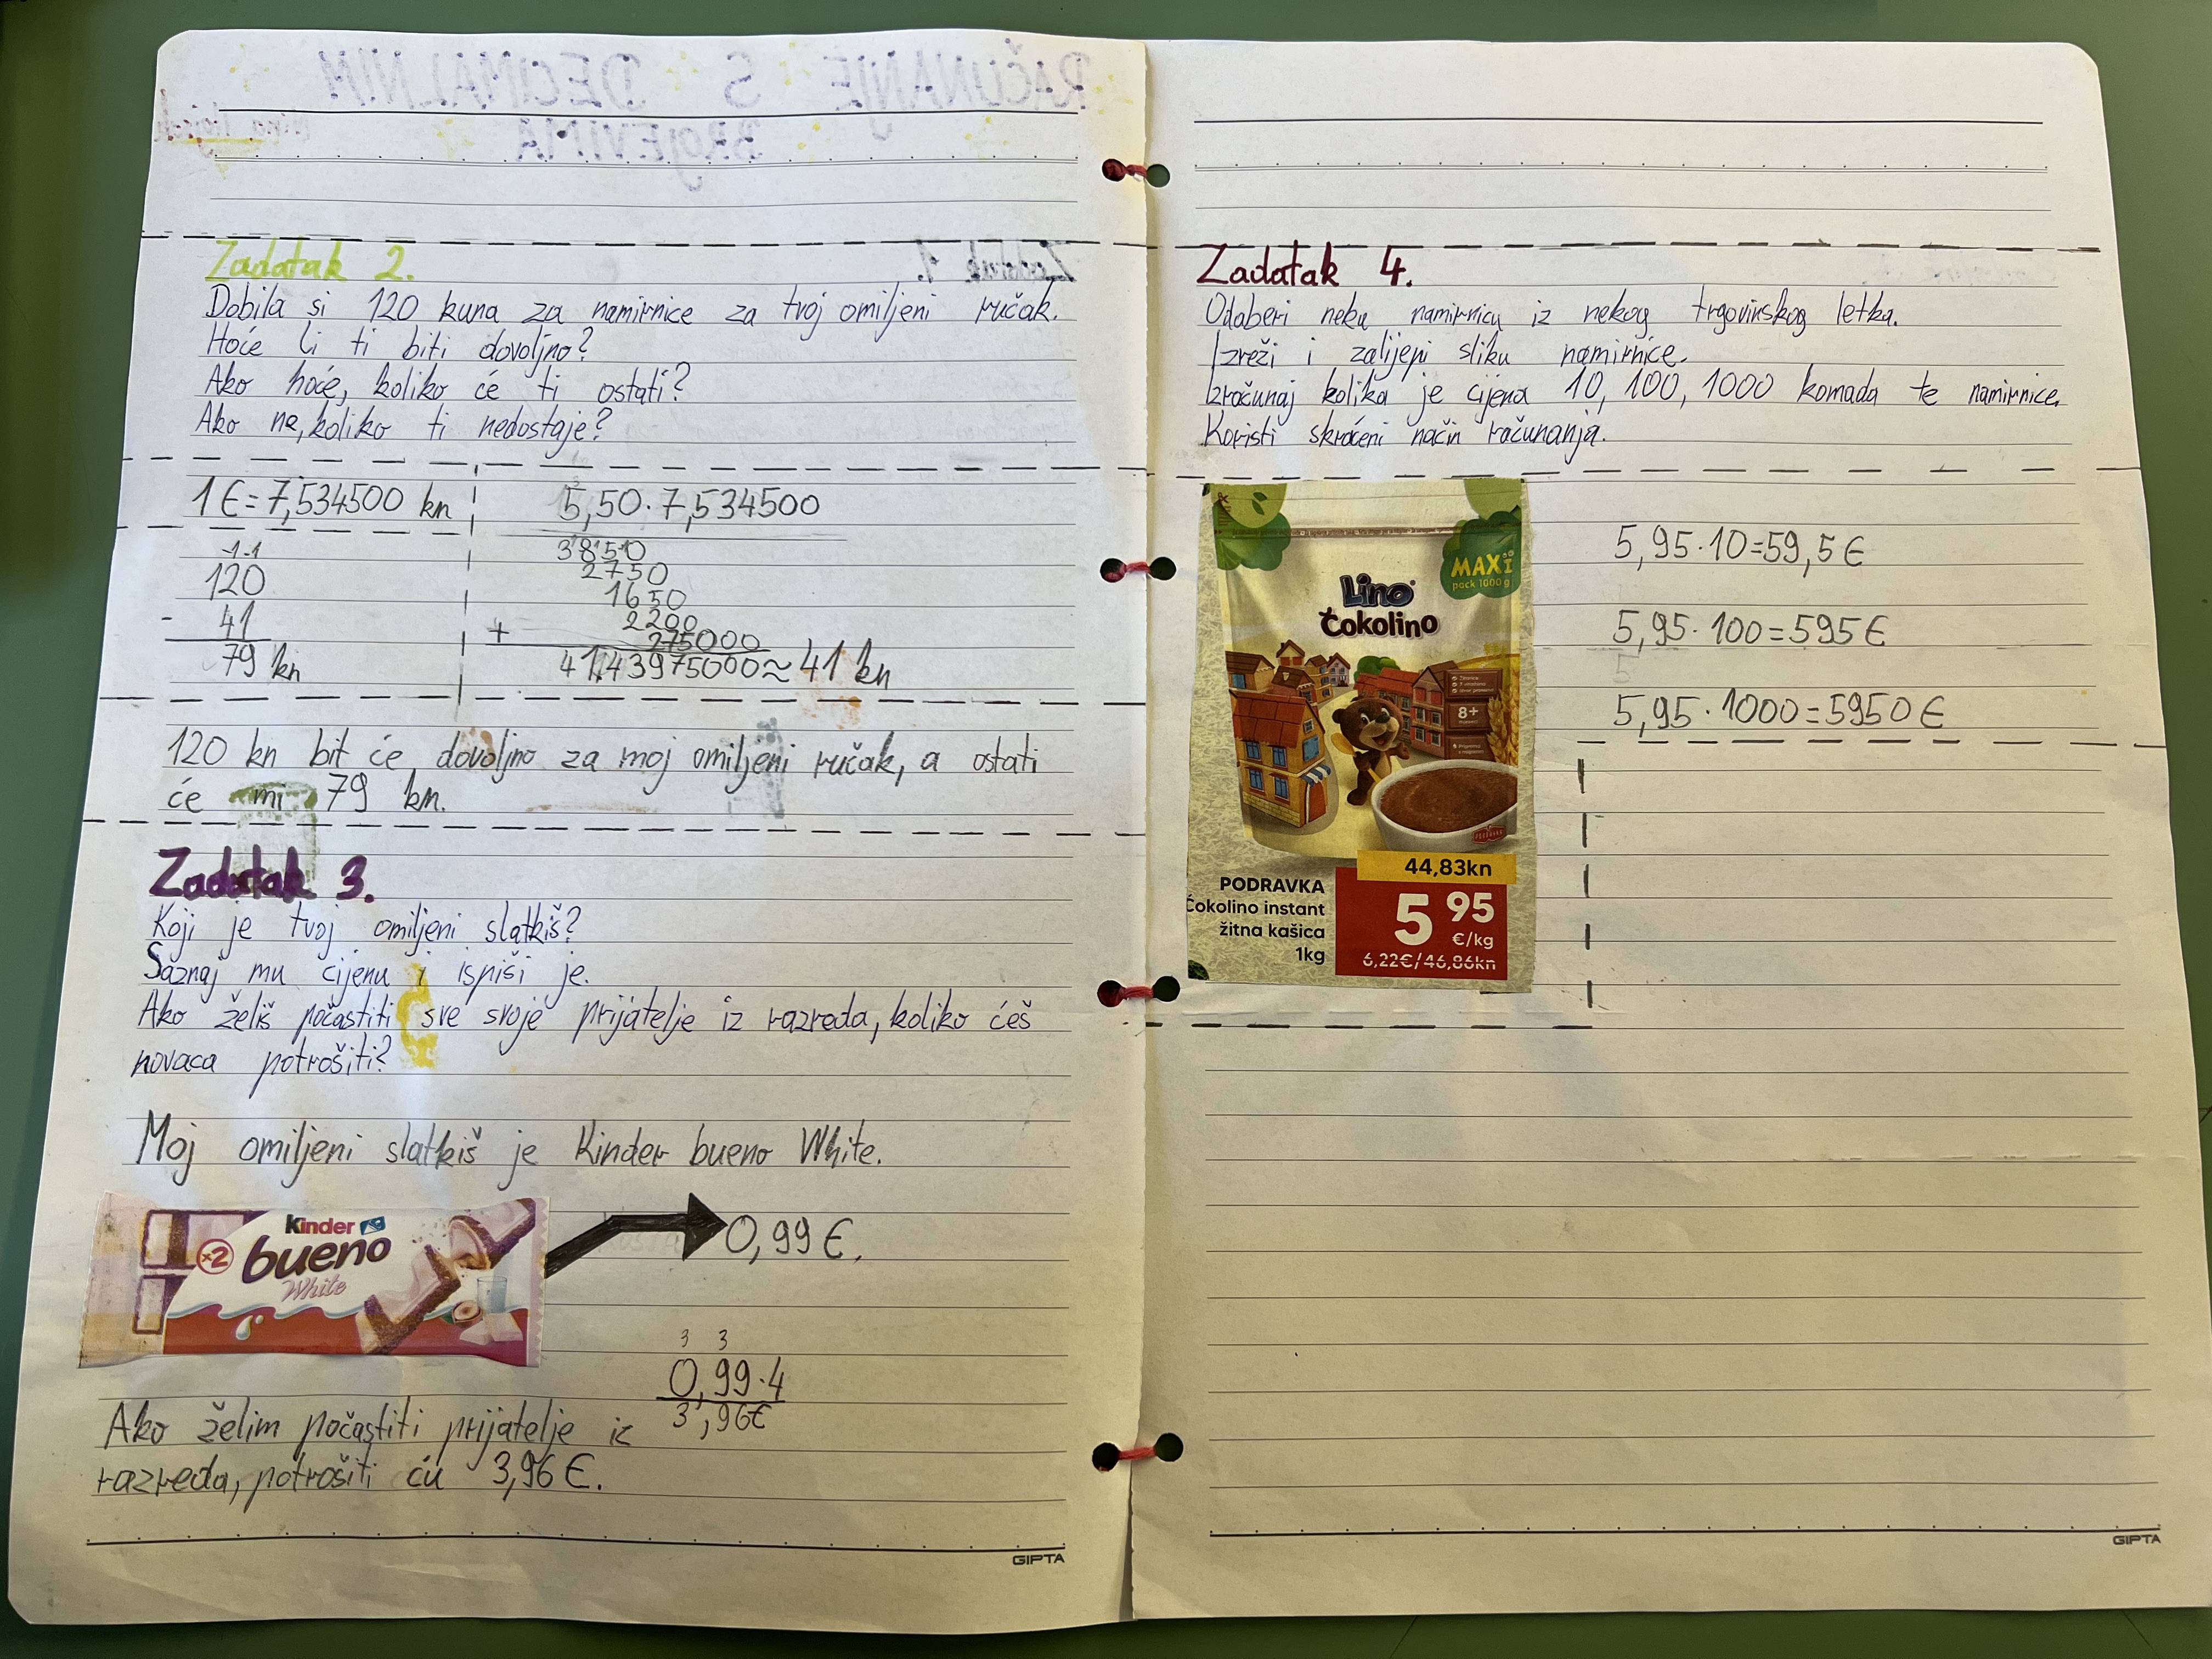 RAČUNANJE S DECIMALNIM
BROJEVIMA
Zadatak 1.
Zadatak 2.
Dobila si 120 kuna za namirnice za tvoj omiljeni ručak.
Hoće li ti biti dovoljno?
Ako hoće, koliko će ti ostati?
Ako ne, koliko ti nedostaje?
1 € = 7,534500 kn
120
- 41
79 kn
5,50 · 7,534500
3850
2750
1650
2200
+ 275000
41,43975000 ≈ 41 kn
120 kn bit će dovoljno za moj omiljeni ručak, a ostati
će mi 79 kn.
Zadatak 3.
Koji je tvoj omiljeni slatkiš?
Saznaj mu cijenu i ispiši je.
Ako želiš počastiti sve svoje prijatelje iz razreda, koliko ćeš
novaca potrošiti?
Moj omiljeni slatkiš je Kinder bueno White.
Kinder
bueno
White
x2
0,99 €.
3 3
0,99 · 4
3,96€
Ako želim počastiti prijatelje iz
razreda, potrošiti ću 3,96 €.
GIPTA
Zadatak 4.
Odaberi neku namirnicu iz nekog trgovinskog letka.
Izreži i zalijepi sliku namirnice.
Izračunaj kolika je cijena 10, 100, 1000 komada te namirnice.
Koristi skraćeni način računanja.
MAXi
pack 1000 g
Lino
Čokolino
8+
44,83kn
PODRAVKA
Čokolino instant
žitna kašica
1kg
5 95
€/kg
6,22€/46,86kn
5,95 · 10 = 59,5 €
5,95 · 100 = 595 €
5,95 · 1000 = 5950 €
GIPTA